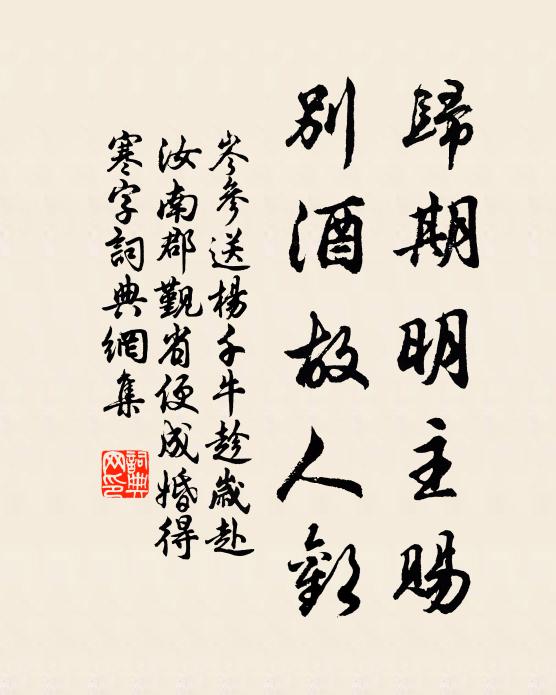 歸期明主賜
別酒故人歡
岑參送楊千牛趁歲赴
汝南郡覲省便成婚得
寒字詞典網集
詞典
网印